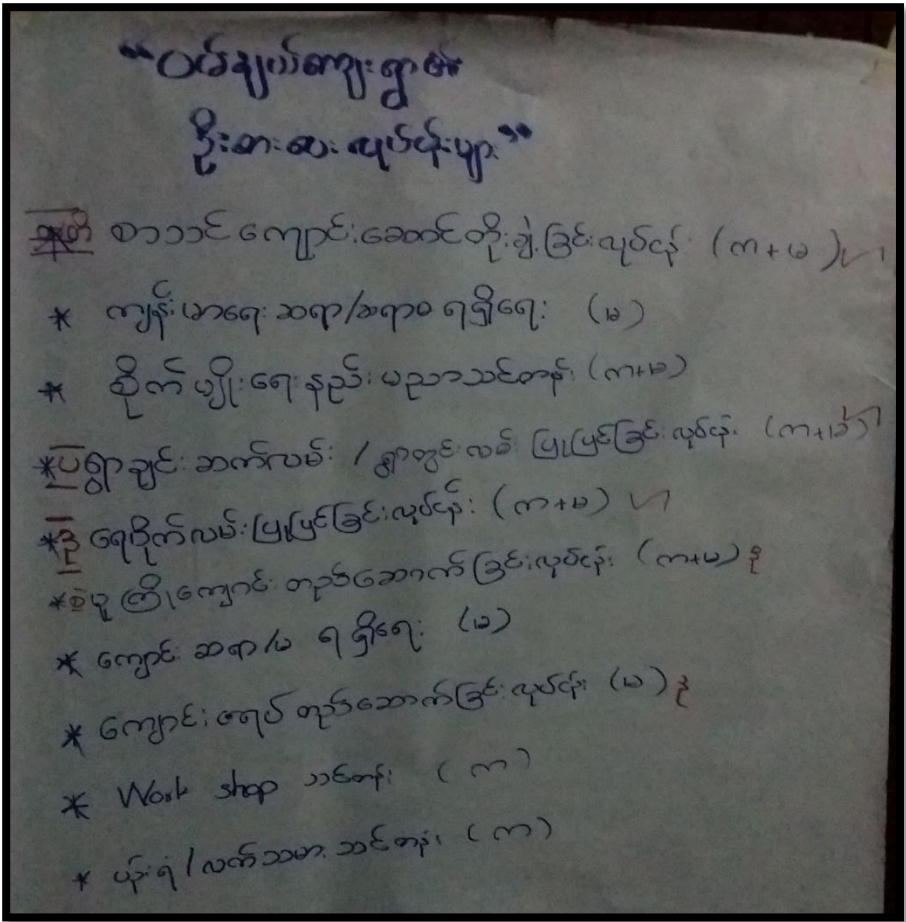 "ဝတ်ချယ်ကျေးရွာ၏
ဦးစားပေးလုပ်ငန်းများ"
စာသင်ကျောင်းဆောင်တိုးချဲ့ခြင်းလုပ်ငန်း (က+မ)
* ကျန်းမာရေးဆရာ/ဆရာမ ရရှိရေး (မ)
* စိုက်ပျိုးရေးနည်းပညာသင်တန်း (က+မ)
*ပ ရွာချင်းဆက်လမ်း / ရွာတွင်းလမ်း ပြုပြင်ခြင်းလုပ်ငန်း (က+မ)
*ဒု ရေပိုက်လမ်းပြုပြင်ခြင်းလုပ်ငန်း (က+မ)
* မူကြိုကျောင်း တည်ဆောက်ခြင်းလုပ်ငန်း (က+မ) ၃
* ကျောင်းဆရာ/မ ရရှိရေး (မ)
* ကျောင်း တည်ဆောက်ခြင်းလုပ်ငန်း (မ) ၃
* Work shop သင်တန်း (က)
* ပန်းရံ/လက်သမားသင်တန်း (က)